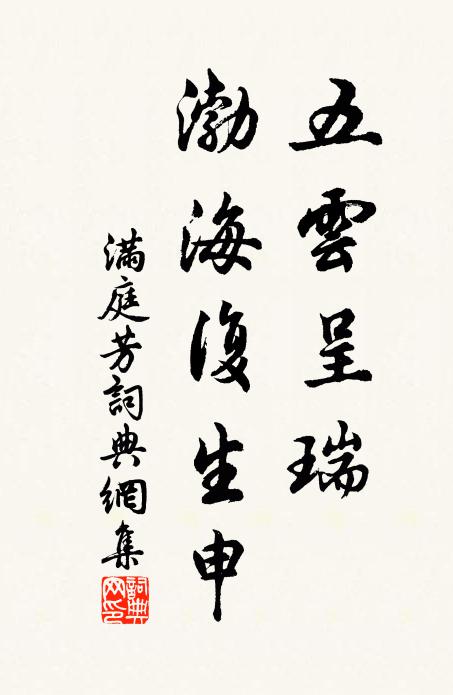 五雲呈瑞
渤海復生申
滿庭芳詞典網集
詞典
网印